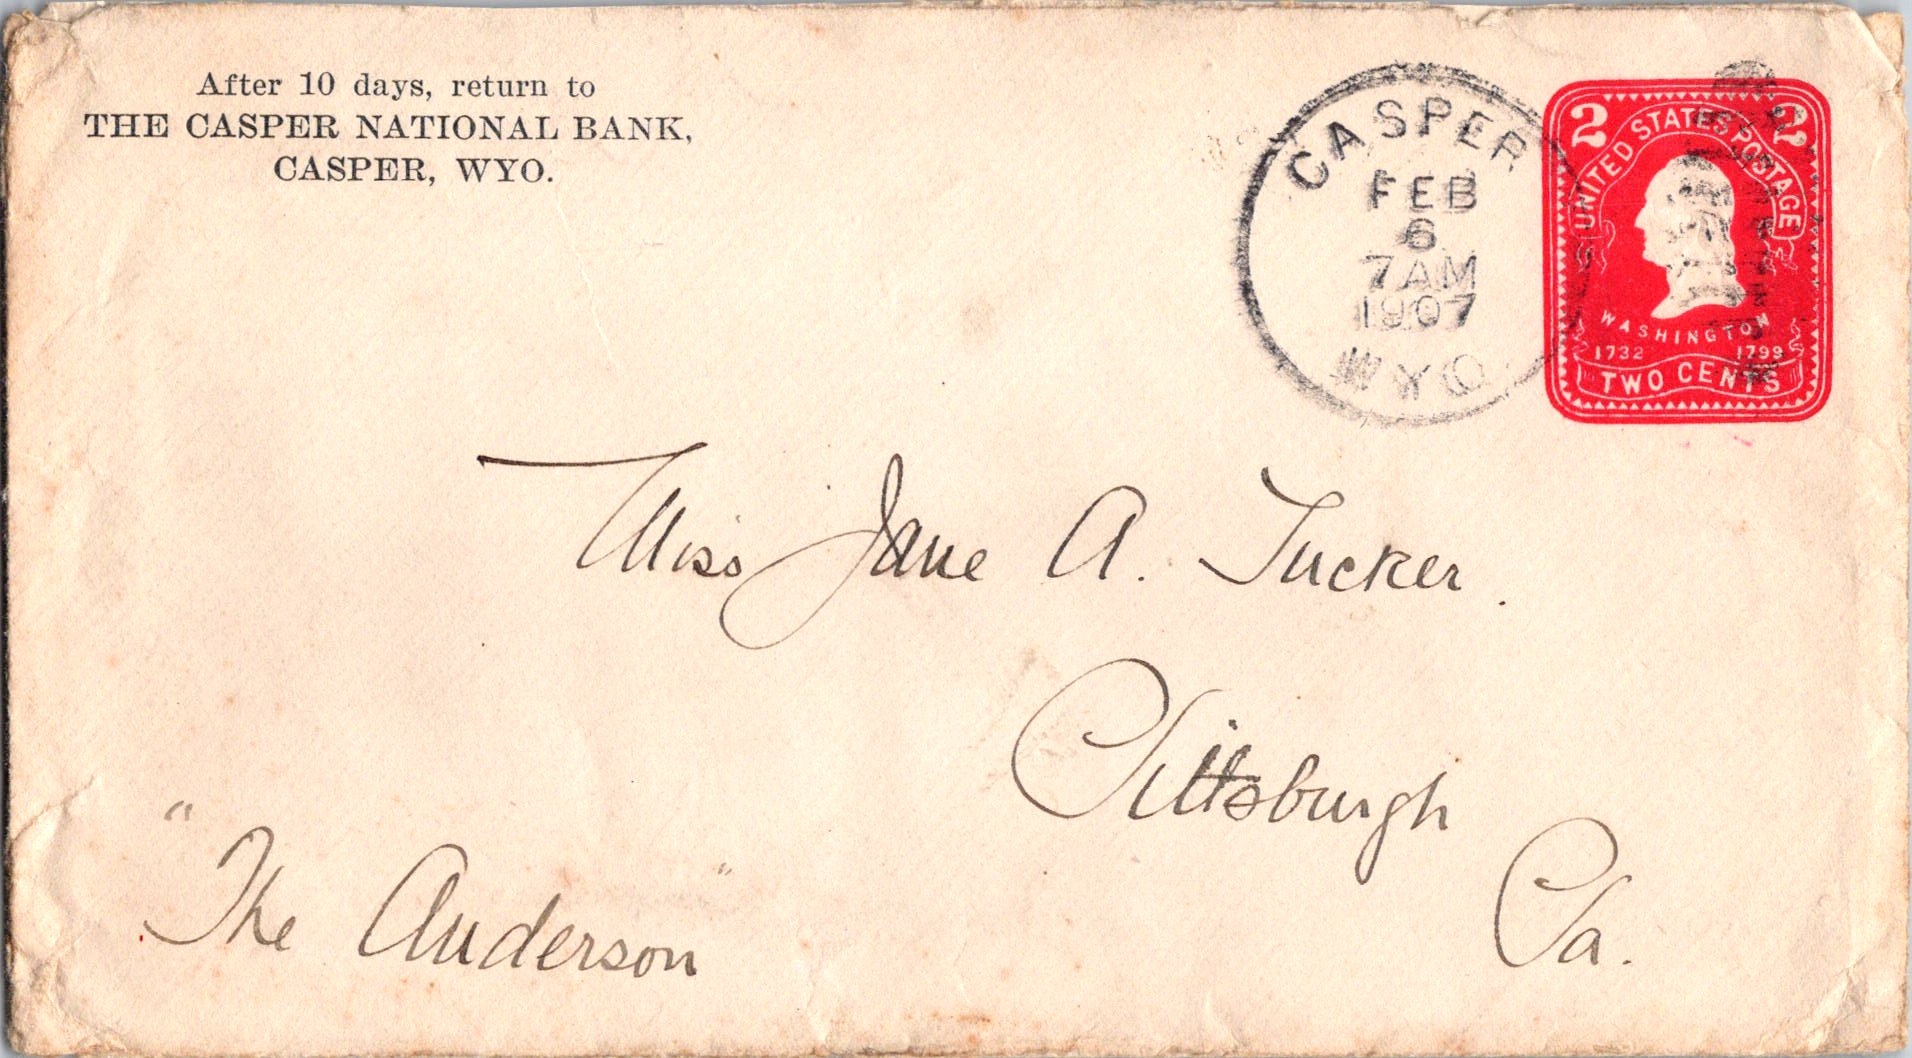 After 10 days, return to
THE CASPER NATIONAL BANK,
CASPER, WYO.
CASPER
FEB
6
7 AM
1907
WYO
2 2
UNITED STATES POSTAGE
WASHINGTON
1732 1799
TWO CENTS
Miss Jane A. Tucker.
Pittsburgh
Pa.
"The Anderson"